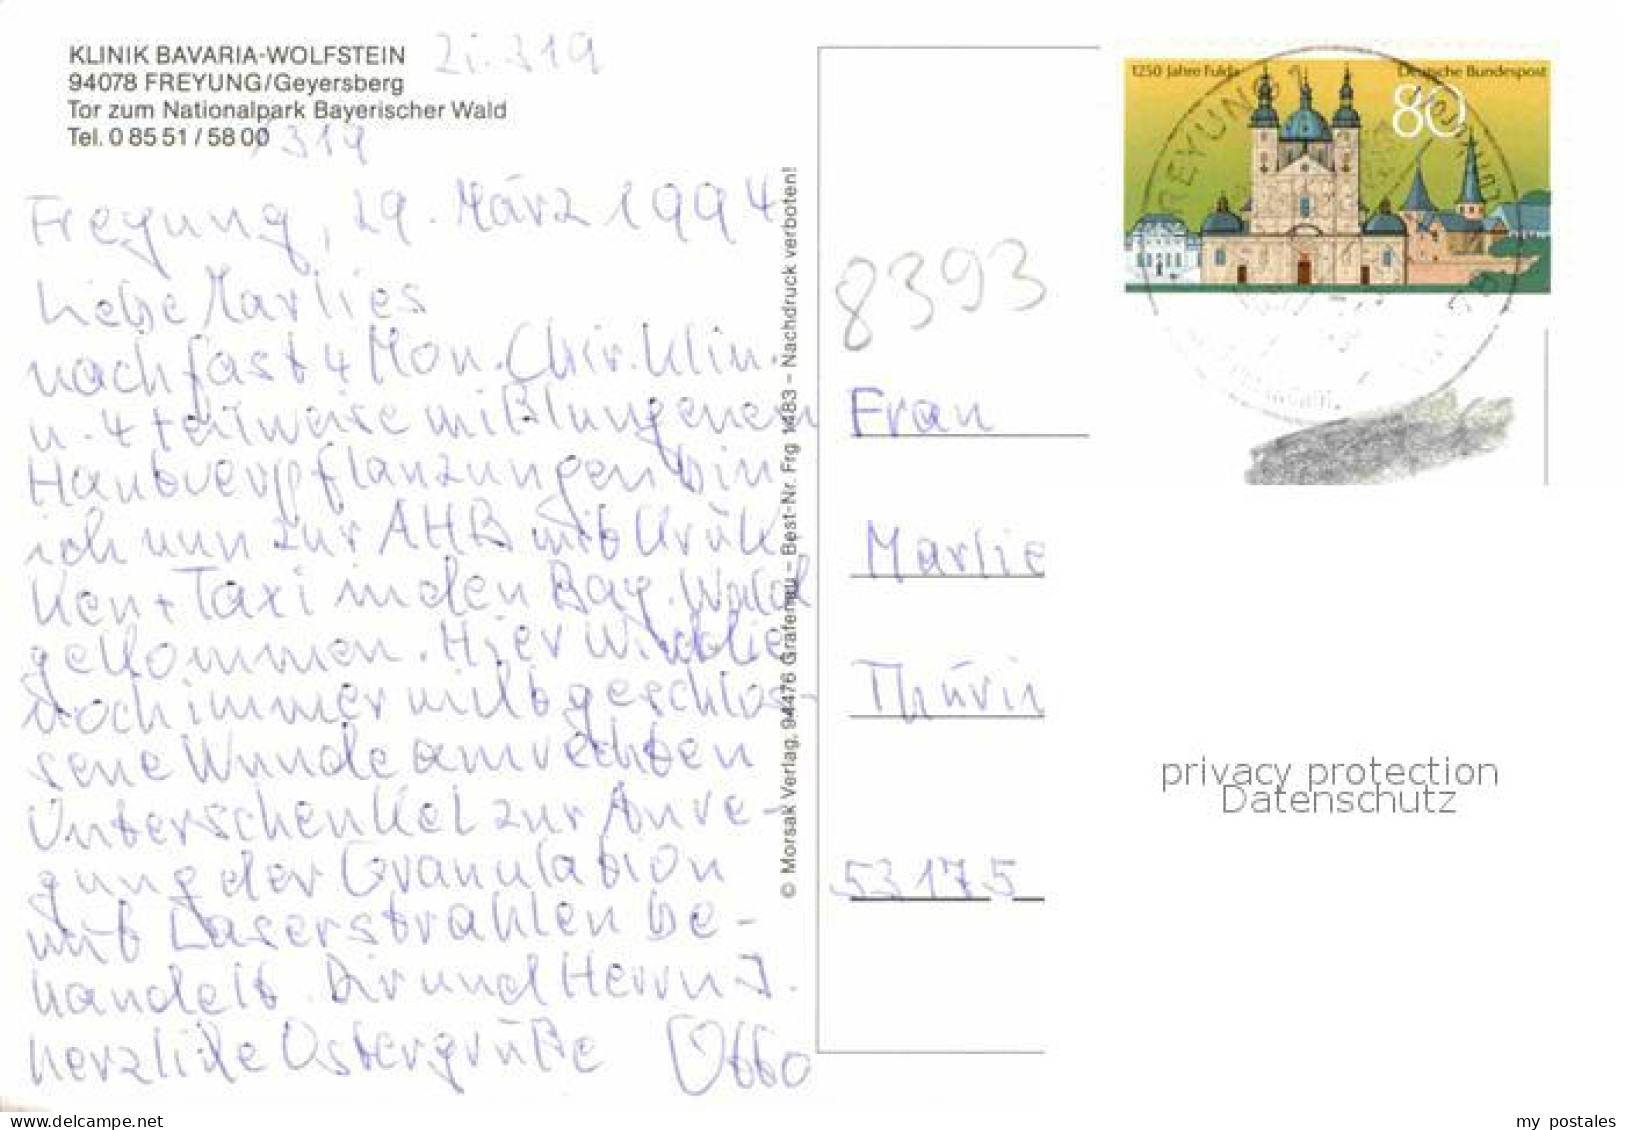 KLINIK BAVARIA-WOLFSTEIN
Zi. 319
94078 FREYUNG/Geyersberg
Tor zum Nationalpark Bayerischer Wald
Tel. 0 85 51 / 58 00
/ 319
Freyung, 29. März 1994
Liebe Marlies
nach fast 4 Mon. Chir. Klin.
u. 4 teilweise mißlungenen
Hautverpflanzungen bin
ich nun zur AHB mit Krük
ken + Taxi in den Bay. Wald
gekommen. Hier wird die
noch immer nicht geschlos-
sene Wunde am rechten
Unterschenkel zur Anre-
gung der Granulation
mit Laserstrahlen be-
handelt. Dir und Herrn J.
herzliche Ostergrüße Otto
© Morsak Verlag, 94476 Grafenau – Best-Nr. Frg 1483 – Nachdruck verboten!
1250 Jahre Fulda
Deutsche Bundespost
80
FREYUNG 1
8393
Frau
Marlie
Thürin
53175
privacy protection
Datenschutz
www.delcampe.net
my_postales